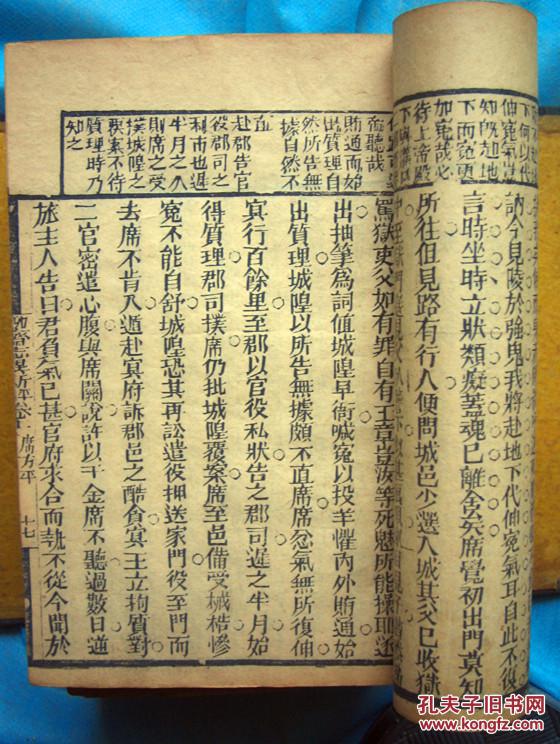 下何以代
伸冤氣
知既赴地
下而冤更
如冤哉必
待上帝殿
訥今見陵於強鬼我將赴地下代伸冤氣耳自此不復
言時坐時立狀類癡蓋魂已離舍矣席覺初出門莫知
所往但見路有行人便問城邑少選入城其父已收獄
而聽哉
賄通而始
出質理自
然所告無
據自然不
直
赴郡告官
役郡司之
利市也遲
半月之久
則席之受
撲城隍之
覆案不待
質理時乃
知之
罵獄吏父如有罪自有王章豈汝等死魅所能操耶遂
出抽筆為詞值城隍早衙喊冤以投羊懼內外賄通始
出質理城隍以所告無據頗不直席席忿氣無所復伸
冥行百餘里至郡以官役私狀告之郡司遲之半月始
得質理郡司撲席仍批城隍覆案席至邑備受械梏慘
冤不能自舒城隍恐其再訟遣役押送家門役至門而
去席不肯入遁赴冥府訴郡邑之酷貪冥王立拘質對
二官密遣心腹與席關說許以千金席不聽過數日逆
旅主人告曰君負氣已甚官府求合而執不從今聞於
席方平
十七
孔夫子旧书网
www.kongfz.com